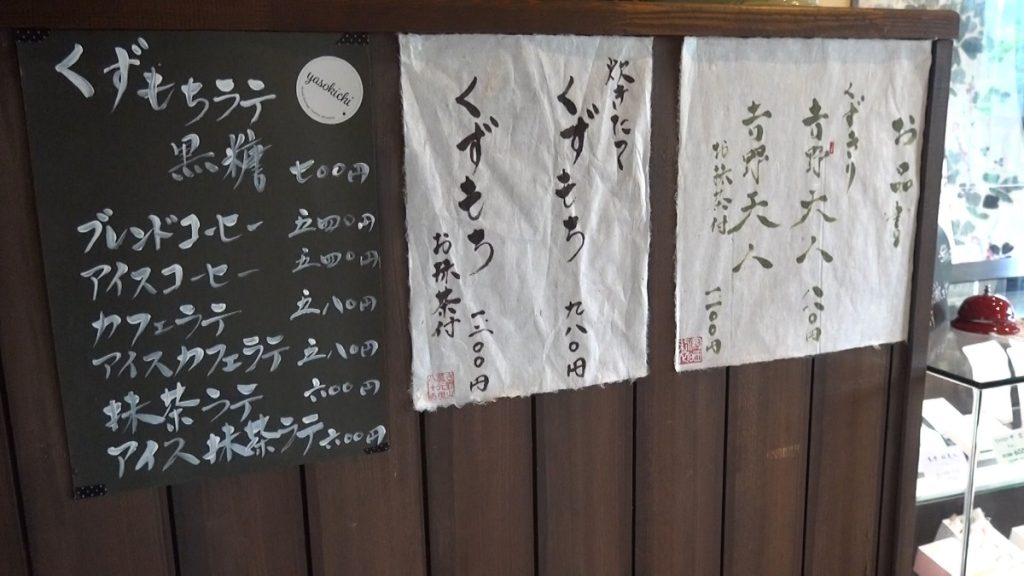 くずもちラテ
黒糖 七〇〇円
yasokichi
ブレンドコーヒー 五四〇円
アイスコーヒー 五四〇円
カフェラテ 五八〇円
アイスカフェラテ 五八〇円
抹茶ラテ 六〇〇円
アイス抹茶ラテ 六〇〇円
炊きたて
くずもち 九八〇円
くずもち お抹茶付 一三〇〇円
お品書
くずきり
吉野天人 八〇〇円
吉野天人 お抹茶付 一一〇〇円